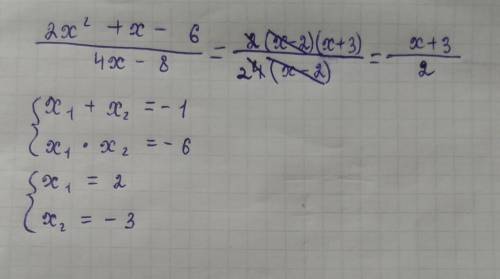 (2x² + x - 6)/(4x - 8) = (2(x-2)(x+3))/(24(x-2)) = (x+3)/2
{x₁ + x₂ = -1
{x₁ • x₂ = -6
{x₁ = 2
{x₂ = -3